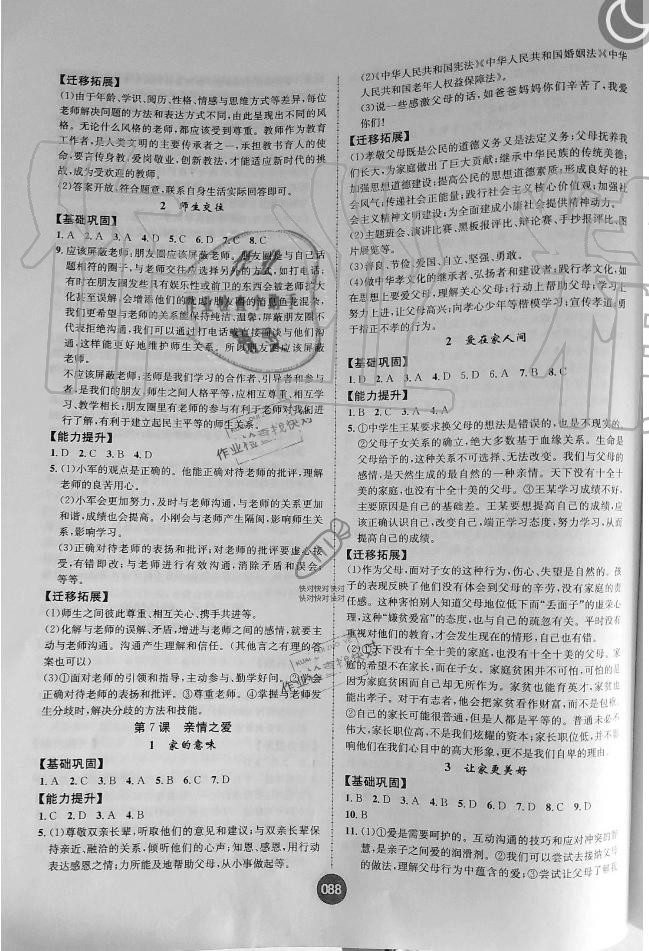 【迁移拓展】
(1)由于年龄、学识、阅历、性格、情感与思维方式等差异,每位
老师解决问题的方法和表达方式不同,由此呈现出不同的风
格。无论什么风格的老师,都应该受到尊重。教师作为教育
工作者,是人类文明的主要传承者之一,承担教书育人的使
命,要言传身教,爱岗敬业,创新教法,才能适应新时代的挑
战,成为受欢迎的教师。
(2)答案开放,符合题意,联系自身生活实际回答即可。
2 师生交往
【基础巩固】
1. A 2. A 3. B 4. C 5. C 6. D 7. C 8. C
9. 应该屏蔽老师:朋友圈应该屏蔽老师。朋友圈是与自己话
题相符的圈子,与老师交往应选择另外的方式,如打电话;
有时在朋友圈发些具有娱乐性或前卫的东西会被老师扩大
化甚至误解,会增添他们的
我们更希望与老师的关系能保持纯洁、温馨,屏蔽朋友圈不
代表拒绝沟通,有时可以通过打电话或直接面谈与他们沟
通,这样能更好地维护师生关系。所以朋友圈应该屏蔽老
师。
不应该屏蔽老师:老师是我们学习的合作者、引导者和参与
者,是我们的朋友;师生之间人格平等,应相互尊重、相互学
习、教学相长;朋友圈里有老师的参与有利于老师对我们进行
了解,有利于建立起民主平等的师生关系。
【能力提升】
1. D 2. C 3. D 4. B
5. (1)小军的观点是正确的。他能正确对待老师的批评,理解
老师的良苦用心。
(2)小军会更加努力,及时与老师沟通,与老师的关系更加
和谐,成绩也会提高。小刚会与老师产生隔阂,影响师生关
系,影响学习。
(3)正确对待老师的表扬和批评;对老师的批评要虚心接
受,有则改之;与老师进行有效沟通,消除矛盾和误会;
等等。
【迁移拓展】
(1)师生之间彼此尊重、相互关心、携手共进等。
(2)化解与老师的误解、矛盾,增进与老师之间的感情,就要主
动与老师沟通。沟通产生理解和信任。(其他言之有理的答
案也可以)
(3)①面对老师的引领和指导,主动参与、勤学好问。②正确
对待老师的表扬和批评。③尊重老师。④掌握与老师发
生分歧时,解决分歧的方法和技能。
第7课 亲情之爱
1 家的意味
【基础巩固】
1. A 2. C 3. B 4. A 5. C 6. B 7. D
【能力提升】
1. C 2. D 3. A 4. B
5. (1)尊敬双亲长辈,听取他们的意见和建议;与双亲长辈
保持亲近、融洽的关系,倾听他们的教诲;知恩、感恩,用行动
表达感恩之情;力所能及地帮助父母,从小事做起等。
(2)《中华人民共和国宪法》《中华人民共和国婚姻法》《中华
人民共和国老年人权益保障法》。
(3)说一些感激父母的话,如爸爸妈妈你们辛苦了,我爱
你们!
【迁移拓展】
(1)孝敬父母既是公民的道德义务又是法定义务;父母抚养我
们长大,为家庭做出了巨大贡献;继承中华民族的传统美德;
加强思想道德建设;提高公民的思想道德素质;形成良好的社
会风气;传递社会正能量;践行社会主义核心价值观;加强社
会主义精神文明建设;为全面建成小康社会提供精神动力。
(2)主题班会、演讲比赛、黑板报评比、辩论赛、手抄报评比、图
片展览等。
(3)善良、节俭、爱国、自立、坚强、勇敢。
(4)做中华孝文化的继承者、弘扬者和建设者;践行孝文化,如
在思想上更爱父母,理解关心父母;行动上帮助父母;学习上
努力上进,让父母高兴;向孝心少年等楷模学习;宣传孝道,勇
于指正不孝的行为。
2 爱在家人间
【基础巩固】
1. D 2. A 3. A 4. A 5. D 6. A 7. C 8. D
【能力提升】
1. B 2. C 3. A 4. A
5. ①中学生王某要求换父母的想法是错误的,也是不现实的。
②父母子女关系的确立,绝大多数基于血缘关系。生命是
父母给予的,这种关系不可选择、无法改变。我们与父母的感
情,是天然生成的最自然的一种亲情。天下没有十全十
美的家庭,也没有十全十美的父母。③王某学习成绩不好,
主要原因在于自己的基础差。王某要想提高自己的成绩,应
该正确认识自己,改变自己,端正学习态度,努力学习,从而
提高自己的成绩。
【迁移拓展】
(1)作为父母,面对子女的这种行为,伤心、失望是自然的。孩
子的表现反映了他们没有体会到父母的辛劳,没有家庭的责任
感。这种害怕别人知道父母地位低下而“丢面子”的虚荣心
理,这种“嫌贫爱富”的态度,也与自己的疏忽有关。平时没有
重视对他们的教育,才会发生现在的情形,自己也有错。
(2)①天下没有十全十美的父母,也没有十全十美的家
庭的希望不在于父母,而在于子女。家庭贫困并不可怕,可怕的是
因家庭贫困而自己却无所作为。家贫也能贤能,家贫也
能出孝子。对于有志者,他会把贫困看作财富,而不是包袱。
②自己的家长可能很普通,但人都是平等的。普通未必不
伟大,平凡的父母不是我们炫耀的资本;家长职位低,并不
影响他们在我们心目中的高大形象,更不是我们自卑的理由。
3 让家更美好
【基础巩固】
1. B 2. D 3. D 4. B 5. D 6. D 7. D 8. C 9. C
10. B
11. (1)①爱是需要呵护的。互动沟通的技巧和应对冲突的智
慧,是亲子之间爱的润滑剂。②我们可以尝试去接纳父母
的做法,理解父母行为中蕴含的爱;③尝试让父母了解我
088